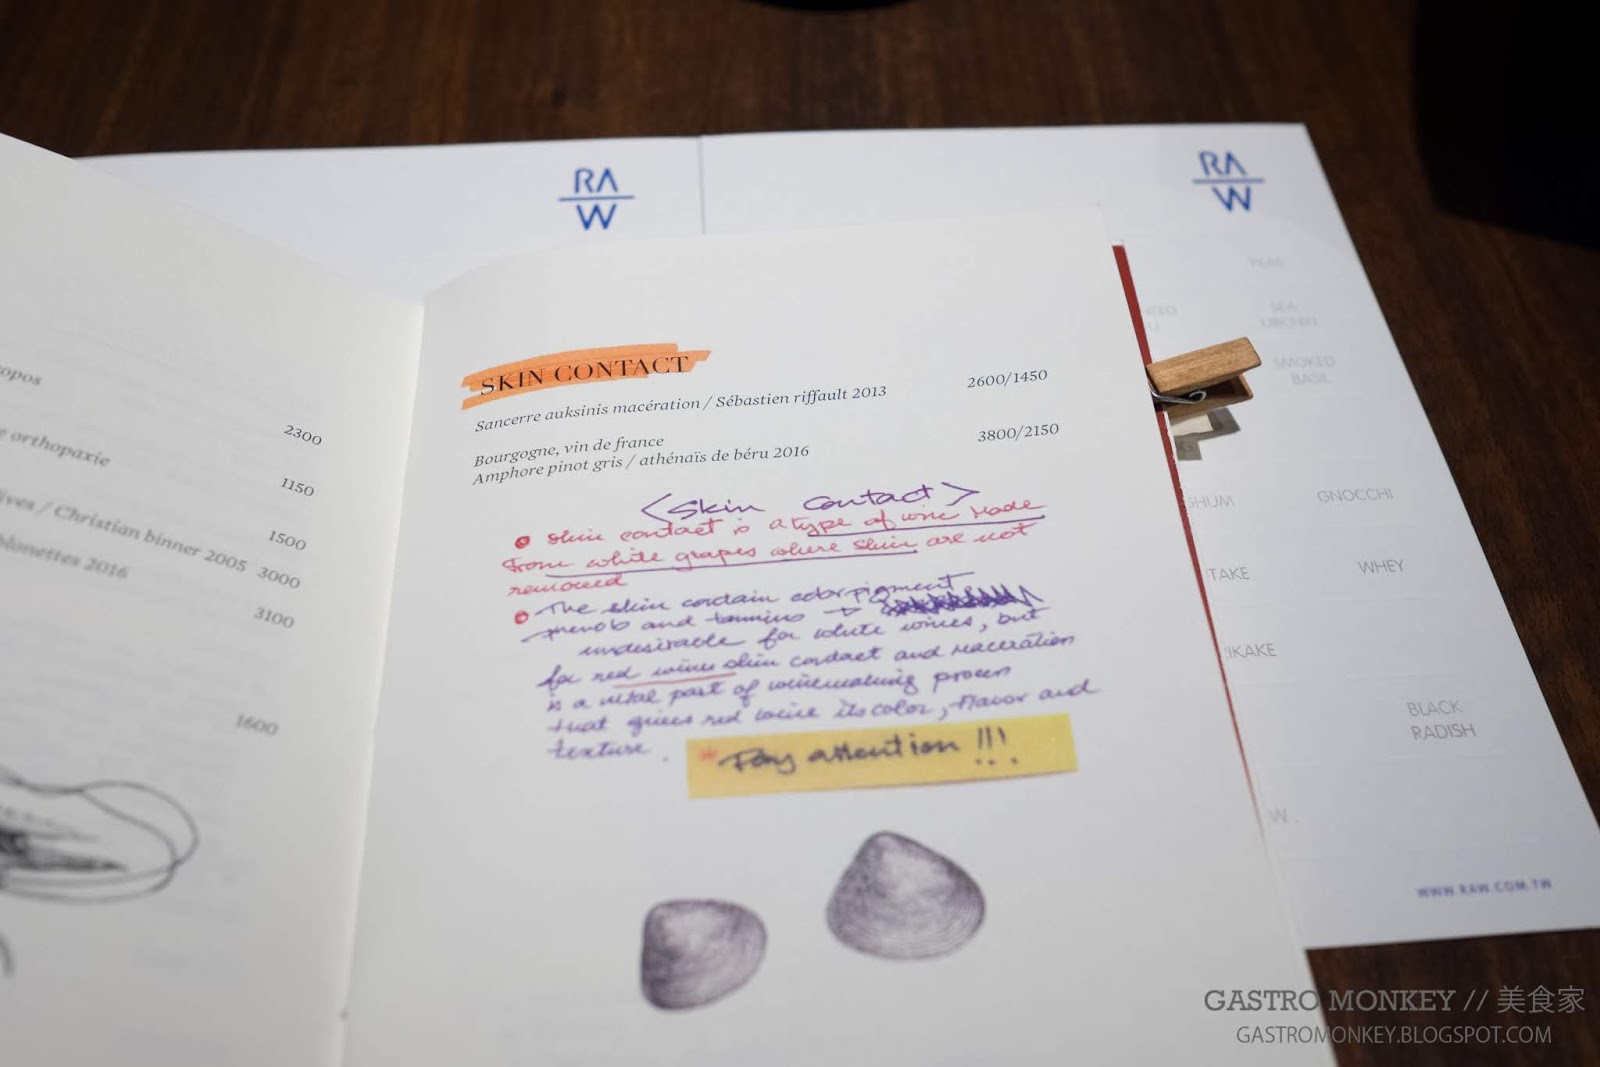 RA
W
RA
W
PEAR
SEA
URCHIN
SMOKED
BASIL
GNOCCHI
TAKE
WHEY
BLACK
RADISH
WWW.RAW.COM.TW
2300
orthopaxie
1150
/ Christian binner 2005 3000
1500
2016
3100
1600
SKIN CONTACT
Sancerre auksinis macération / Sébastien riffault 2013 2600/1450
Bourgogne, vin de france 3800/2150
Amphore pinot gris / athénaïs de béru 2016
<Skin Contact>
• skin contact is a type of wine made
from white grapes where skin are not
removed
• The skin contain color pigment
phenols and tannins →
undesirable for white wines, but
for red wines skin contact and maceration
is a vital part of winemaking process
that gives red wine its color, flavor and
texture.
* Pay attention !!!
GASTRO MONKEY // 美食家
GASTROMONKEY.BLOGSPOT.COM